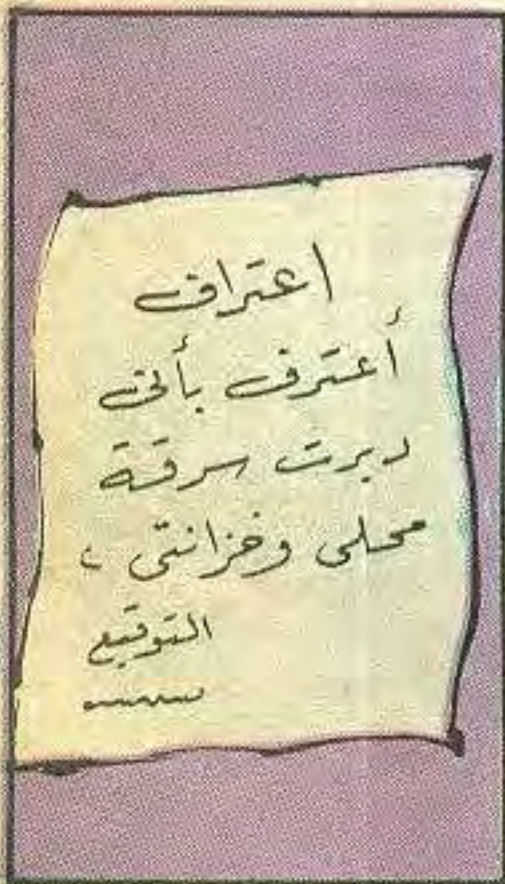 اعتراف
أعترف بأنى
دبرت سرقة
محلى وخزانتى ،
التوقيع